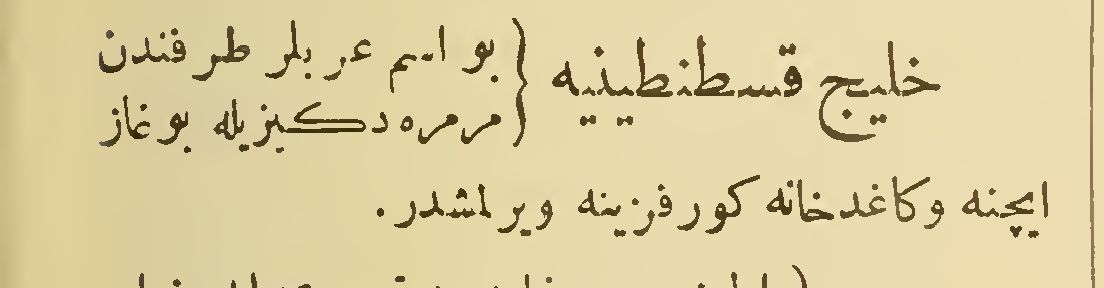 خليج قسطنطينيه { بو اسم عربلر طرفندن
( مرمره دكيزيله بوغاز
ايچنه وكاغدخانه كورفزينه ويرلمشدر .